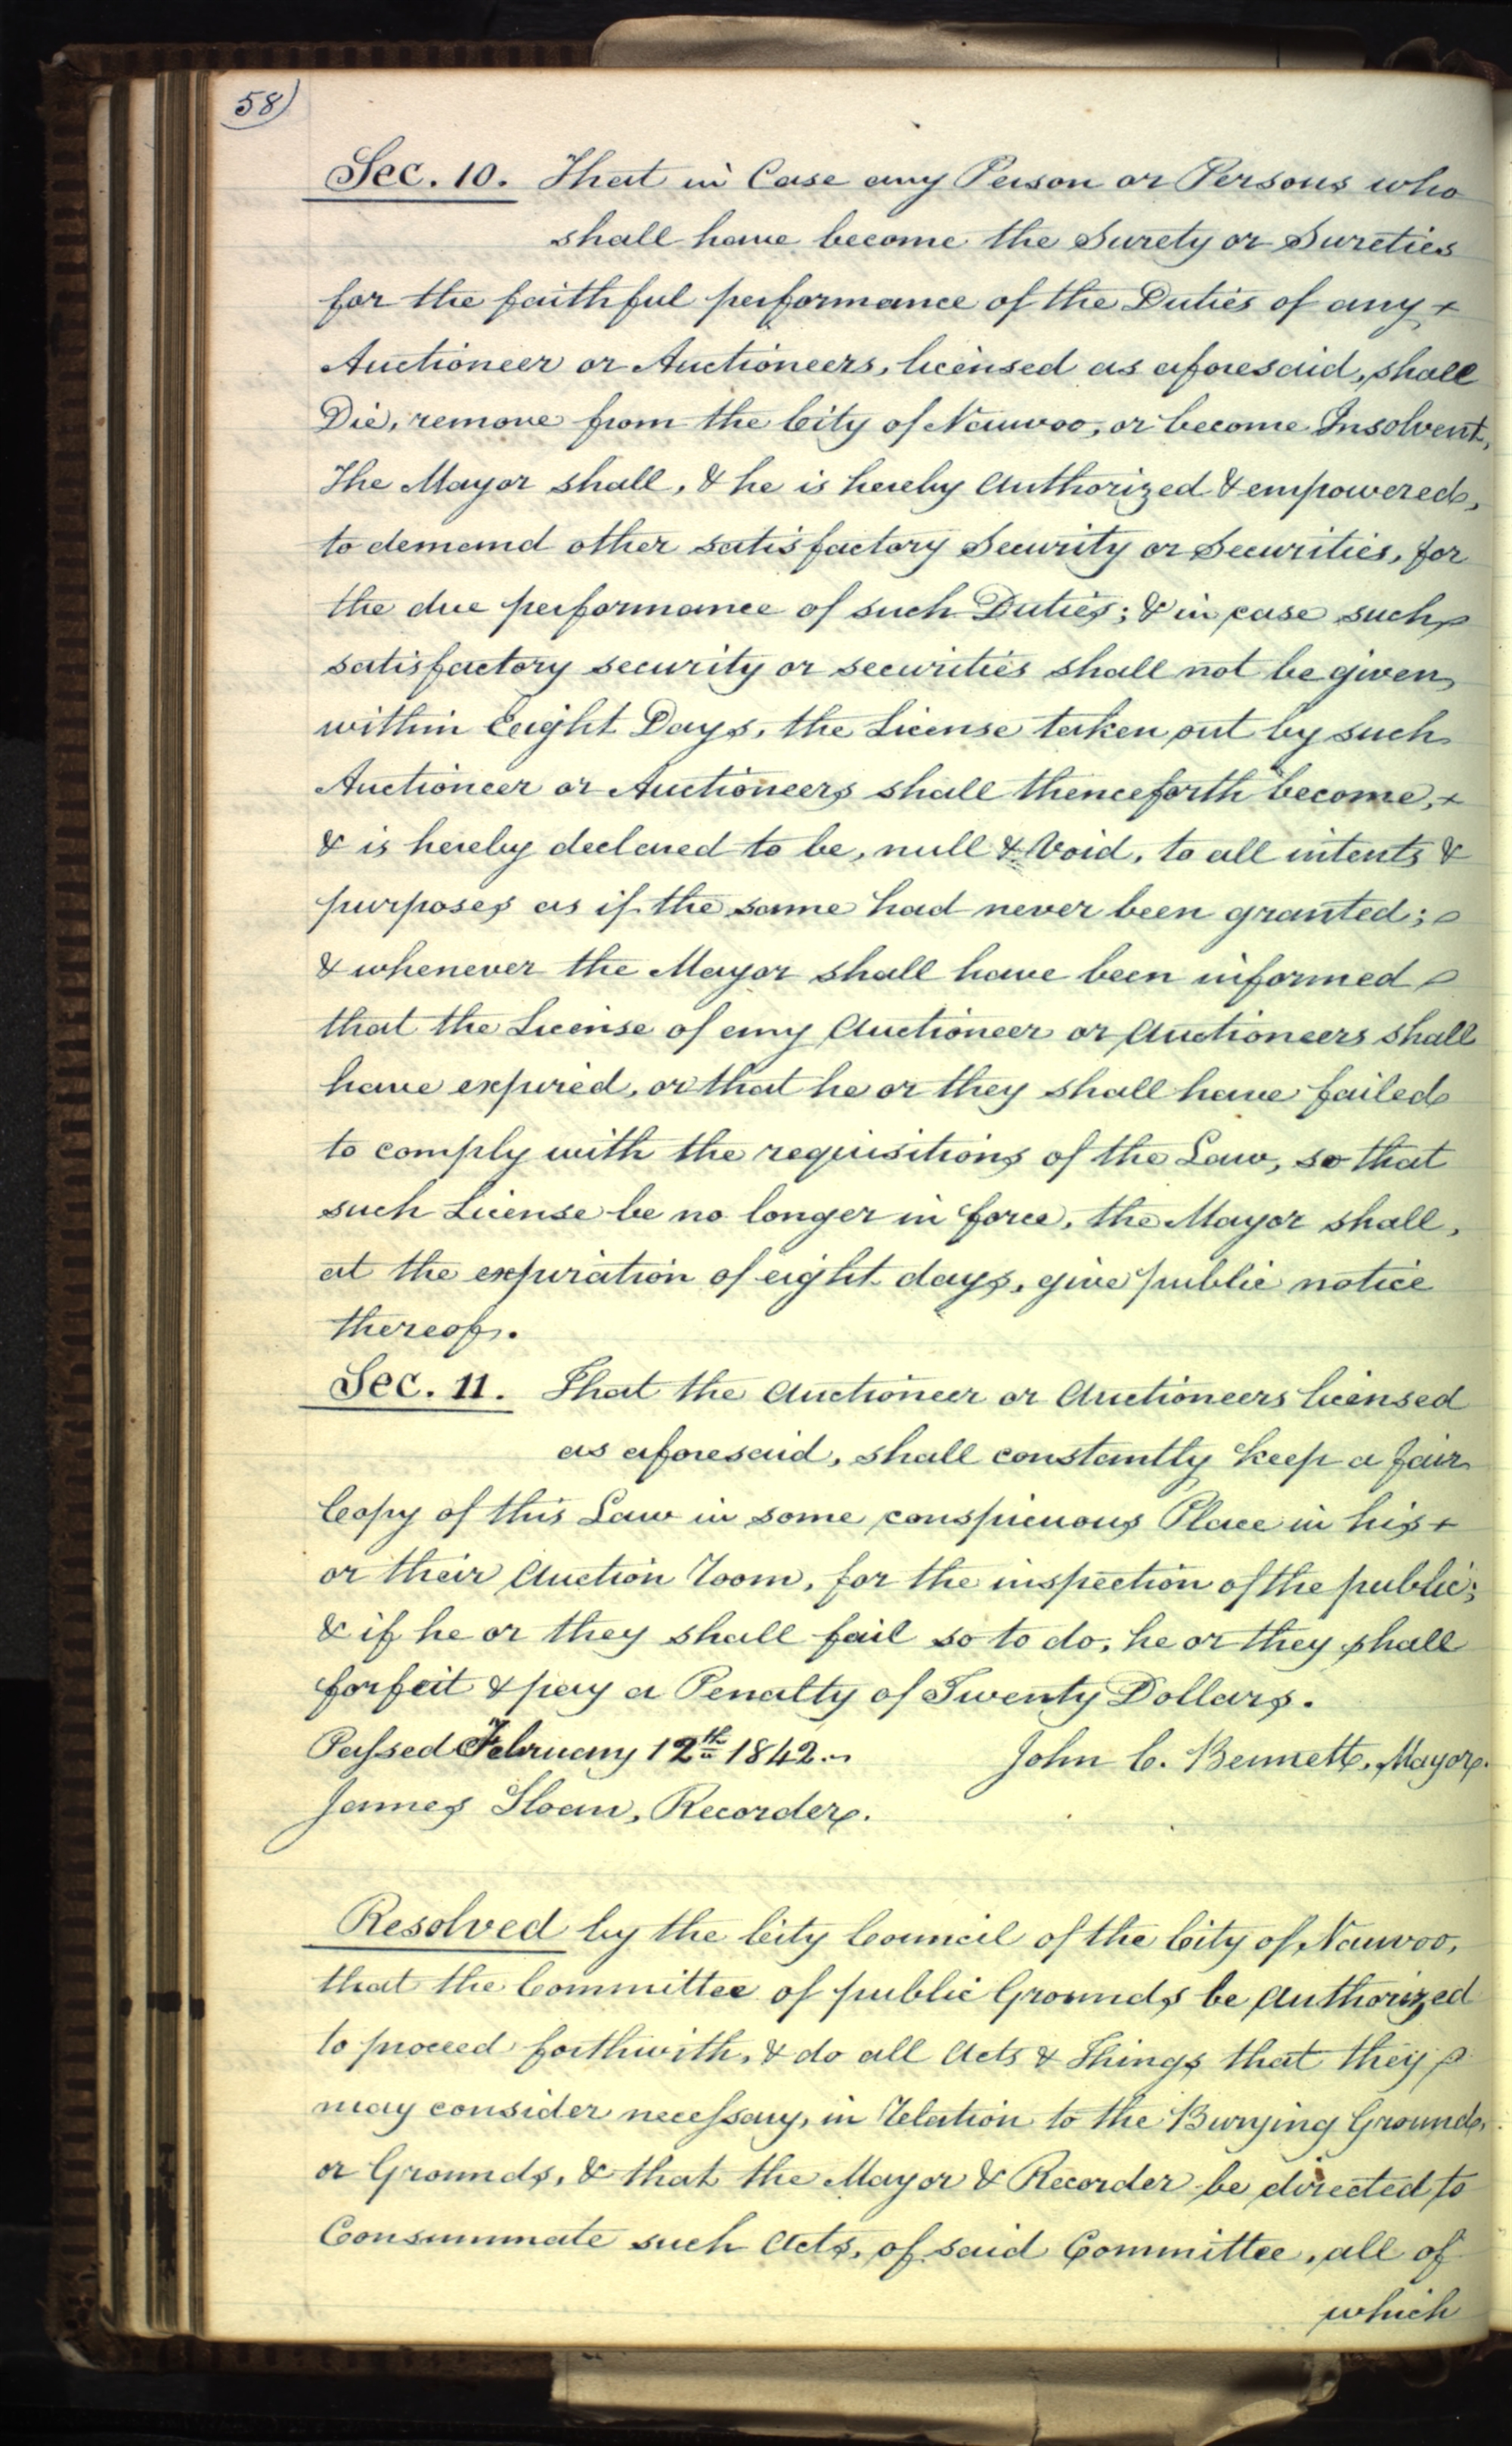 58)
Sec. 10. That in Case any Person or Persons who
shall have become the Surety or Sureties
for the faithful performance of the Duties of any
Auctioneer or Auctioneers, licensed as aforesaid, shall
Die, remove from the City of Nauvoo, or become Insolvent,
The Mayor shall, & he is hereby Authorized & empowered,
to demand other satisfactory Security or Securities, for
the due performance of such Duties; & in case such
satisfactory security or securities shall not be given
within Eeight Days, the License taken out by such
Auctioneer or Auctioneers shall thenceforth become,
& is hereby declared to be, null & Void, to all intents &
purposes as if the same had never been granted;
& whenever the Mayor shall have been informed
that the License of any Auctioneer or Auctioneers shall
have expired, or that he or they shall have failed
to comply with the requisitions of the Law, so that
such License be no longer in force, the Mayor shall,
at the expiration of eight days, give public notice
thereof.
Sec. 11. That the Auctioneer or Auctioneers licensed
as aforesaid, shall constantly keep a fair
Copy of this Law in some conspicuous Place in his
or their Auction Room, for the inspection of the public;
& if he or they shall fail so to do, he or they shall
forfeit & pay a Penalty of Twenty Dollars.
Passed February 12th 1842. John C. Bennett, Mayor.
James Sloan, Recorder.
Resolved by the City Council of the City of Nauvoo,
that the Committee of public Grounds be Authorized
to proceed forthwith, & do all Acts & Things that they
may consider necessary, in Relation to the Burying Ground,
or Grounds, & that the Mayor & Recorder be directed to
Consummate such Acts, of said Committee, all of
which